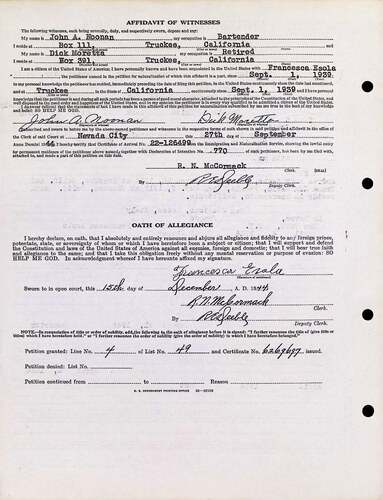 AFFIDAVIT OF WITNESSES
The following witnesses, each being severally, duly, and respectively sworn, depose and say:
My name is John A. Noonan, my occupation is Bartender
I reside at Box 111, Truckee, California
My name is Dick Moretta, my occupation is Retired
I reside at Box 391, Truckee, California
I am a citizen of the United States of America; I have personally known and have been acquainted in the United States with Francesca Esola
, the petitioner named in the petition for naturalization of which this affidavit is a part, since Sept. 1, 1939
to my personal knowledge the petitioner has resided, immediately preceding the date of filing this petition, in the United States continuously since the date last mentioned, and at Truckee
in the State of California continuously since Sept. 1, 1939 and I have personal
HELP ME GOD.
John A. Noonan Dick Moretta
Subscribed and sworn to before me by the above-named petitioner and witnesses in the respective forms of oath shown in said petition and affidavit in the office of
the Clerk of said Court at Nevada City this 27th day of September
Anno Domini 1944 I hereby certify that Certificate of Arrival No. 22-126499 from the Immigration and Naturalization Service, showing the lawful entry
for permanent residence of the petitioner above named, together with Declaration of Intention No. 770
attached to, and made a part of this petition on this date.
R. N. McCormack
Clerk. [SEAL]
By
Deputy Clerk.
OATH OF ALLEGIANCE
I hereby declare, on oath, that I absolutely and entirely renounce and abjure all allegiance and fidelity to any foreign prince,
potentate, state, or sovereignty of whom or which I have heretofore been a subject or citizen; that I will support and defend
the Constitution and laws of the United States of America against all enemies, foreign and domestic; that I will bear true faith
and allegiance to the same; and that I take this obligation freely without any mental reservation or purpose of evasion: SO
HELP ME GOD. In acknowledgment whereof I have hereunto affixed my signature.
Francesca Esola
Sworn to in open court, this 15th day of December, A. D. 1944
R. N. McCormack
Clerk.
By
Deputy Clerk.
NOTE.—In renunciation of title or order of nobility, add the following to the oath of allegiance before it is signed: "I further renounce the title of (give title or
titles) which I have heretofore held," or "I further renounce the order of nobility (give the order of nobility) to which I have heretofore belonged."
Petition granted: Line No. 4 of List No. 49 and Certificate No. 6269697 issued.
Petition denied: List No.
Petition continued from to Reason
U. S. GOVERNMENT PRINTING OFFICE